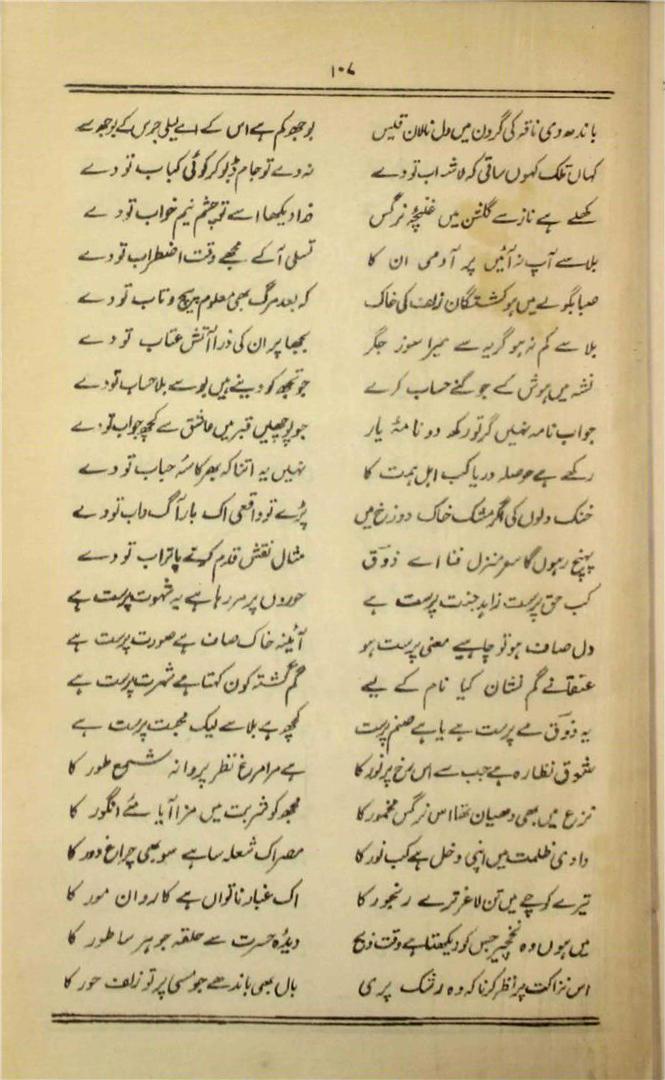 ۱۰۷
باندھ دی ناقہ کی گردن میں دل نالان قیس بوجھ کم ہے اس کے اے لیلی جرس کے بوجھ سے
کہاں تلک کہوں ساقی کہ لا شراب تو دے نہ دے تو جام ڈبو کر کوئی کباب تو دے
کھلے ہے ناز سے گلشن میں غنچۂ نرگس ذرا دیکھا اسے تو چشم نیم خواب تو دے
بلا سے آپ نہ آئیں پر آدمی ان کا تسلی آ کے مجھے وقت اضطراب تو دے
صبا بگولے میں ہو کشتگان زلف کی خاک کہ بعد مرگ بھی معلوم پیچ و تاب تو دے
بلا سے کم نہ ہو گریہ سے میرا سوز جگر بجھا پر ان کی ذرا آتش عتاب تو دے
نشہ میں ہوش کسے جو گنے حساب کرے جو تجھ کو دینے ہیں بوسے بلا حساب تو دے
جواب نامہ نہیں گر تو رکھ دو نامۂ یار جو پوچھیں قبر میں عاشق سے کچھ جواب تو دے
رکھے ہے حوصلہ دریا کب اہل ہمت کا نہیں یہ اتنا کہ بھر کاسۂ حباب تو دے
خنک دلوں کی اگر مشک خاک دوزخ میں پڑے تو واقعی اک بار آگ داب تو دے
پہنچ رہوں گا سر منزل فنا اے ذوق مثال نقش قدم کرنے پا تراب تو دے
کب حق پرست زاہد جنت پرست ہے حوروں پر مر رہا ہے یہ شہوت پرست ہے
دل صاف ہو تو چاہیے معنی پرست ہو آئینہ خاک صاف ہے صورت پرست ہے
عنقا نے گم نشان کیا نام کے لیے گم گشتہ کون کہتا ہے شہرت پرست ہے
یہ ذوق مے پرست ہے یا ہے صنم پرست کچھ ہے بلا سے لیک محبت پرست ہے
شوق نظارہ ہے جب سے اس رخ پر نور کا ہے مرا مرغ نظر پروانہ شمع طور کا
نزع میں بھی دھیان تھا اس نرگس مخمور کا مجھ کو شربت میں مزا آیا مئے انگور کا
وادی ظلمت میں اپنی دخل ہے کب نور کا مصر اک شعلہ سا ہے سو بھی چراغ دور کا
تیرے کوچے میں تن لاغر ترے رنجور کا اک غبار ناتواں ہے کاروان مور کا
میں ہوں وہ نخچیر جس کو دیکھتا ہے وقت ذبح دیدۂ حسرت سے حلقہ جوہر ساطور کا
اس نزاکت پر نظر کرنا کہ وہ رشک پری بال بھی باندھے جو مسی پر تو زلف حور کا